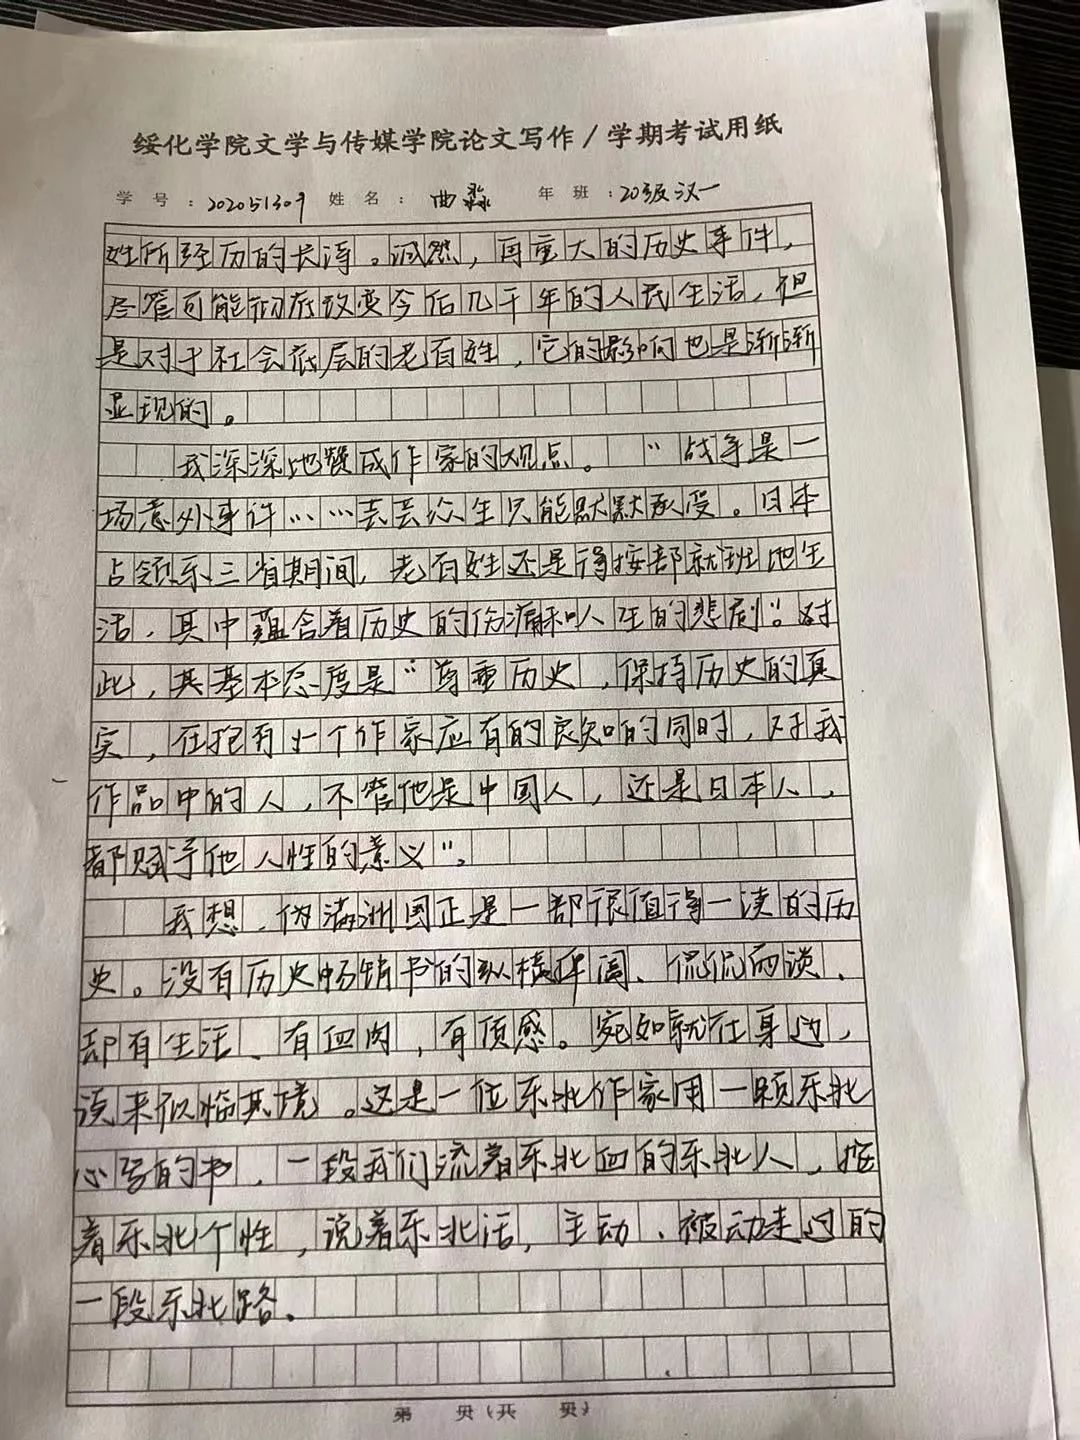 绥化学院文学与传媒学院论文写作/学期考试用纸
学号:202051309 姓名:曲淼 年班:20级汉一
姓所经历的长涛。诚然,再重大的历史事件,
尽管可能彻底改变今后几千年的人民生活,但
是对于社会底层的老百姓,它的影响也是渐渐
显现的。
我深深地赞成作家的观点。“战争是一
场意外事件……芸芸众生只能默默承受。日本
占领东三省期间,老百姓还是得按部就班地生
活,其中蕴含着历史的伤痛和人生的悲剧”。对
此,其基本态度是“尊重历史,保持历史的真
实,在抱有一个作家应有的良知的同时,对我
作品中的人,不管他是中国人,还是日本人,
都赋予他人性的意义”。
我想,伪满洲国正是一部很值得一读的历
史。没有历史畅销书的纵横捭阖、侃侃而谈,
却有生活、有血肉,有质感。宛如就在身边,
读来似临其境。这是一位东北作家用一颗东北
心写的书,一段我们流着东北血的东北人,
着东北个性,说着东北话,主动、被动走过的
一段东北路.
第 页(共 页)